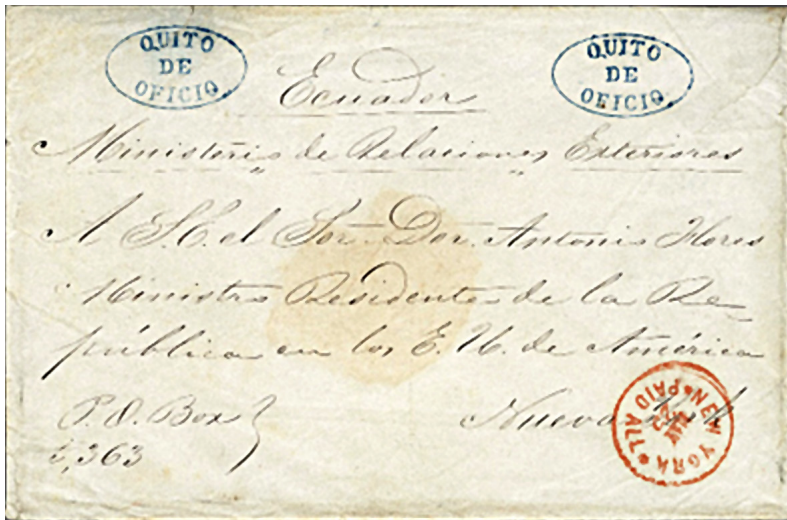 QUITO
DE
OFICIO
QUITO
DE
OFICIO
Ecuador
Ministerio de Relaciones Exteriores
A S.E. el Sor. Dor. Antonio Flores
Ministro Residente de la Re-
pública en los E. U. de América
P. O. Box
Nueva York
,363
NEW YORK PAID ALL